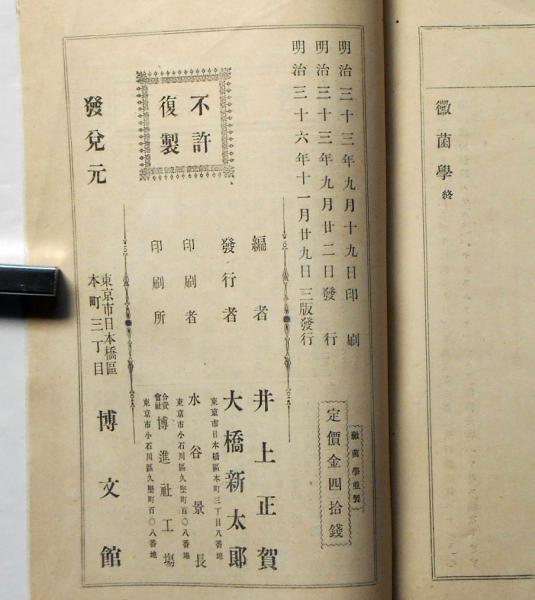 黴菌學 終
明治三十三年九月十九日印刷
明治三十三年九月廿二日發行
明治三十六年十一月廿九日三版發行
黴菌學並製
定價金四拾錢
不許
復製
編者 井上正賀
發行者 大橋新太郎
東京市日本橋區本町三丁目八番地
印刷者 水谷景長
東京市小石川區久堅町百〇八番地
印刷所 合資會社 博進社工場
東京市小石川區久堅町百〇八番地
發兌元 東京市日本橋區本町三丁目 博文館